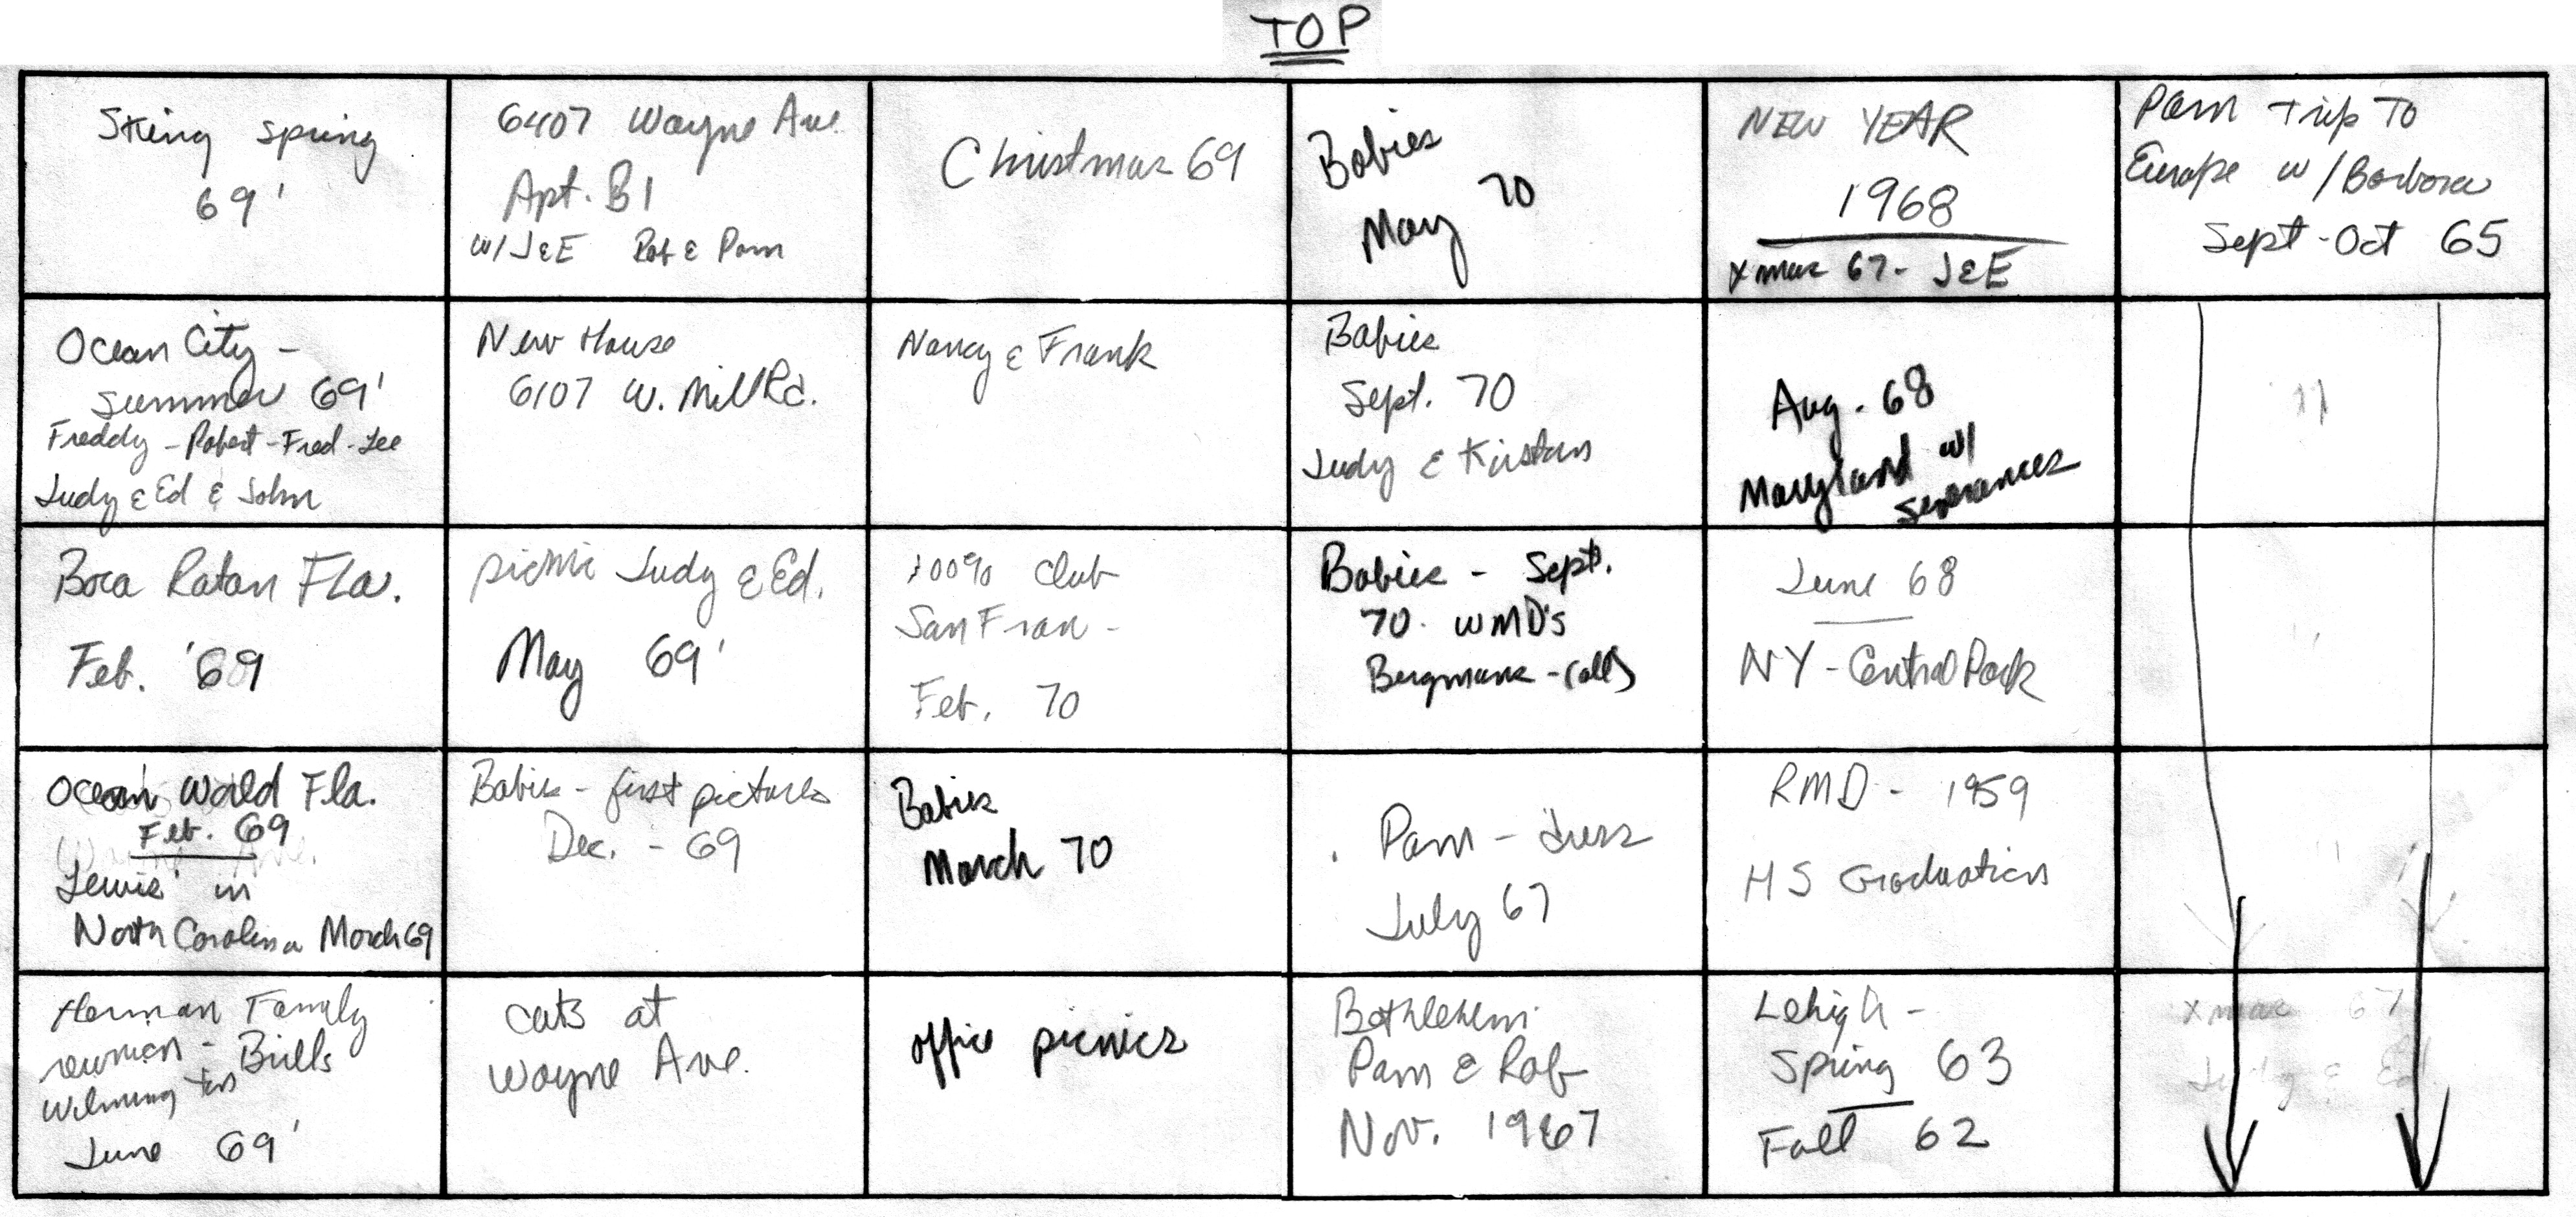 TOP
Skiing Spring
69'
6407 Wayne Ave
Apt. B1
w/ J&E Rob & Pam
Christmas 69
Babies
May 70
NEW YEAR
1968
xmas 67 - J&E
Pam Trip To
Europe w/ Barbara
Sept-Oct 65
Ocean City -
Summer 69'
Freddy - Robert - Fred - Lee
Judy & Ed & John
New House
6107 W. Mill Rd.
Nancy & Frank
Babies
Sept. 70
Judy & Kirsten
Aug. 68
Maryland w/
Severances
"
Boca Ratan Fla.
Feb. '69
picnic Judy & Ed.
May 69'
100% Club
San Fran -
Feb. 70
Babies - Sept.
70. WMD's
Bergmans - (all)
June 68
NY - Central Park
"
Ocean World Fla.
Feb. 69
Lewis' in
North Carolina March 69
Babies - first pictures
Dec. - 69
Babies
March 70
Pam -
July 67
RMD - 1959
HS Graduation
"
Herman Family
reunion - Bills
Wilmington
June 69'
cats at
Wayne Ave.
office picnics
Bethlehem
Pam & Rob
Nov. 1967
Lehigh -
Spring 63
Fall 62
xmas 67
Judy & Ed